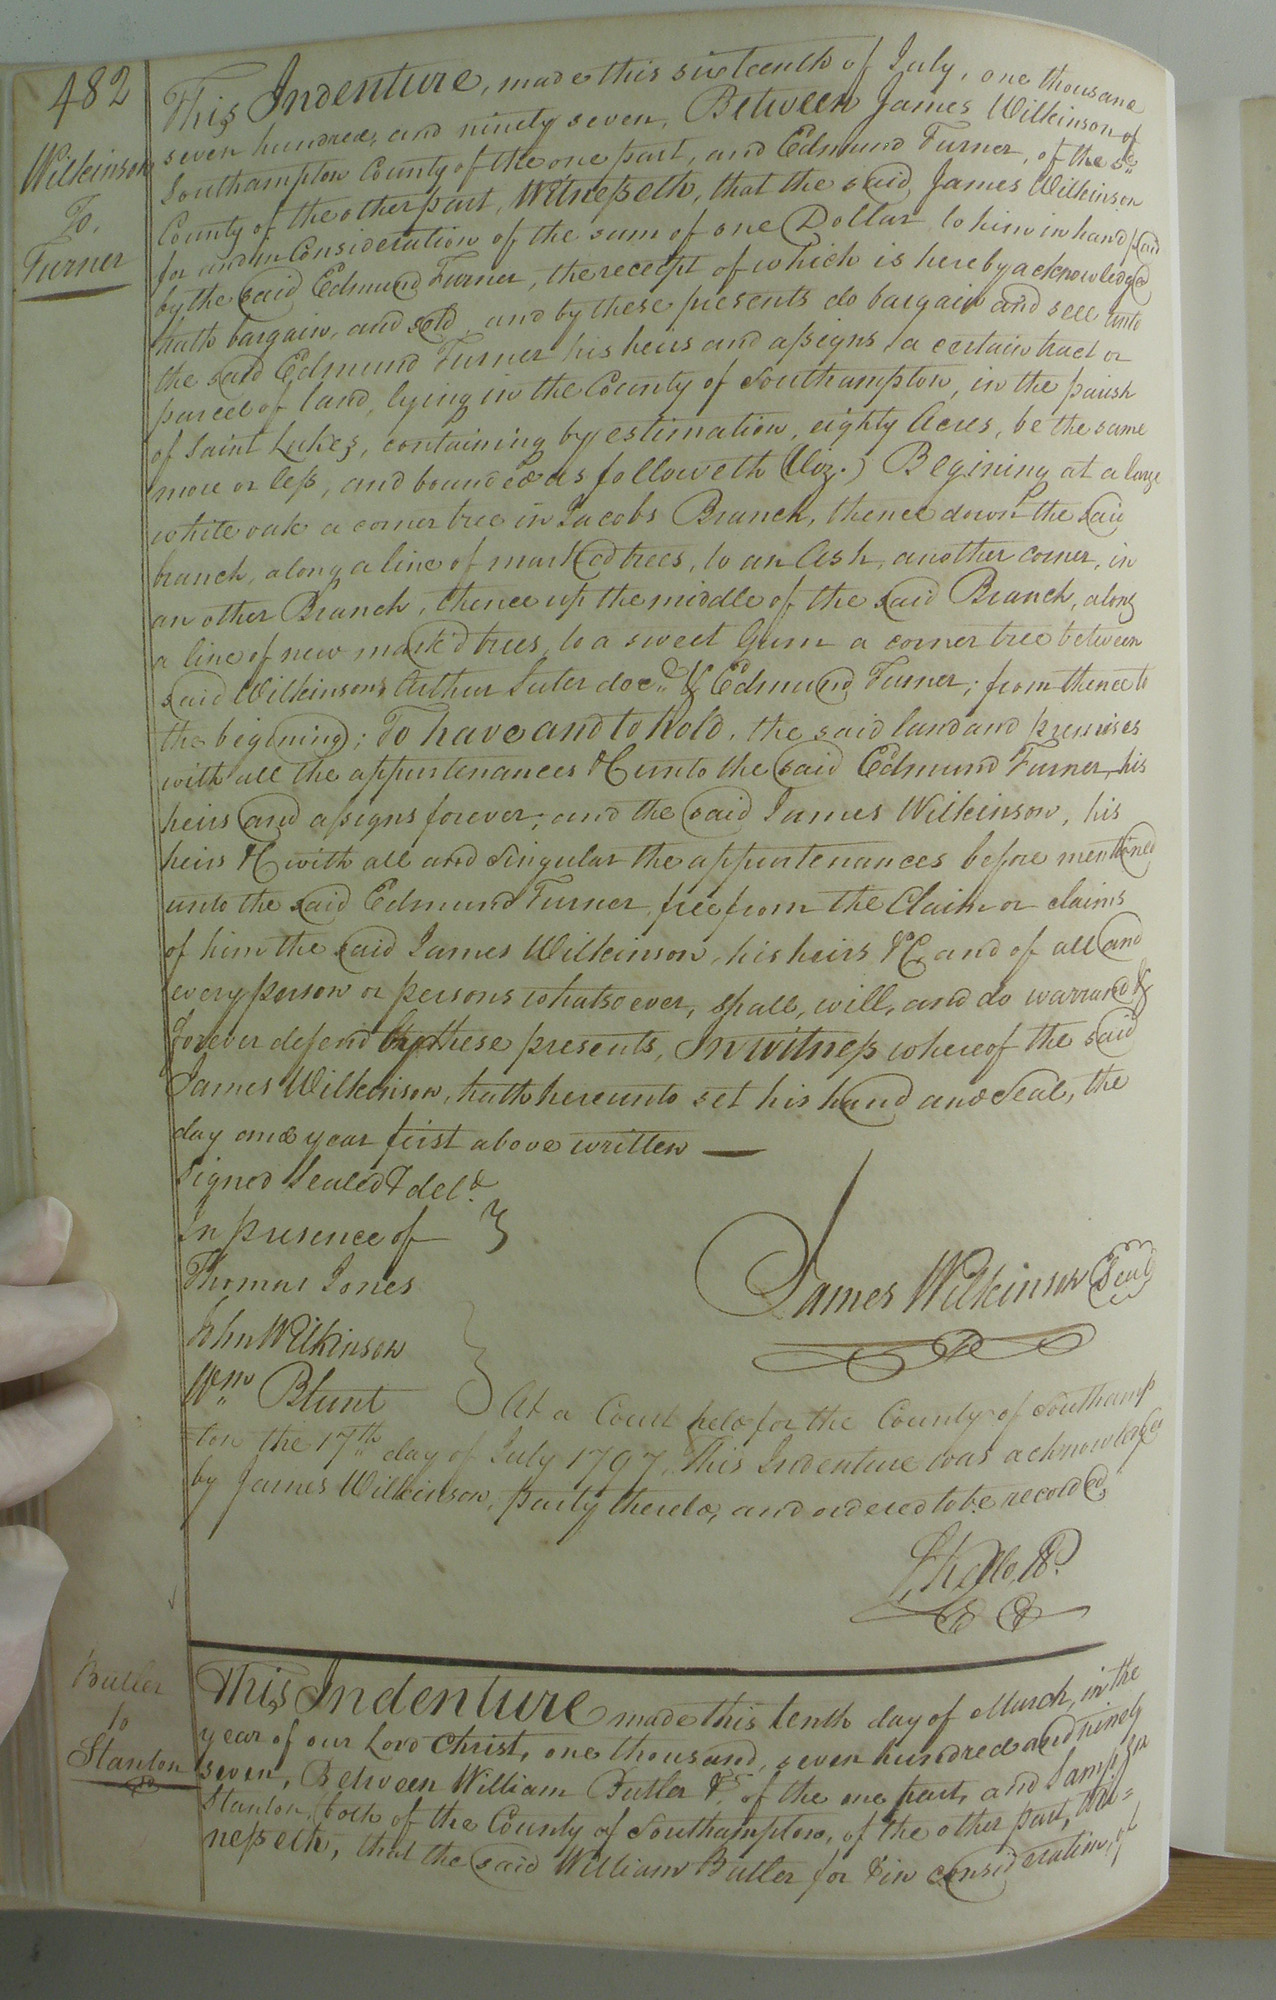 482
Wilkinson
To.
Turner
This Indenture, made this sixteenth of July, one thousand
seven hundred, and ninety seven, Between James Wilkinson of
Southampton County of the one part, and Edmund Turner, of the sd.
County of the other part, Witnesseth, that the said James Wilkinson
for and in Consideration of the sum of one Dollar to him in hand paid
by the said Edmund Turner, the receipt of which is hereby acknowledged
hath bargain, and sold, and by these presents do bargain and sell unto
the said Edmund Turner his heirs and assigns, a certain tract or
parcel of land, lying in the County of Southampton, in the parish
of Saint Lukes, containing by estimation, eighty Acres, be the same
more or less, and bounded as followeth (Viz.) Begining at a large
white oak a corner tree in Jacobs Branch, thence down the said
branch, along a line of marked trees, to an Ash, another corner, in
an other Branch, thence up the middle of the said Branch, along
a line of new mark'd trees, to a sweet Gum a corner tree between
said Wilkinsons Arthur Suter dec.d & Edmund Turner; from thence to
the begining; To have and to hold, the said land and premises
with all the appurtenances &C unto the said Edmund Turner, his
heirs and assigns forever; and the said James Wilkinson, his
heirs &C with all and singular the appurtenances before mentioned
unto the said Edmund Turner, free from the Claim or claims
of him the said James Wilkinson, his heirs &C, and of all and
every person or persons whatsoever, shall, will, and do warrand &
forever defend by these presents, In witness whereof the said
James Wilkinson, hath hereunto set his hand and Seal, the
day and year first above written —
Signed Sealed & del.d
In presence of
Thomas Jones
James Wilkinson Seal
John Wilkinson
Wm Blunt
At a Court held for the County of Southamp
ton the 17th day of July 1797. This Indenture was acknowledged
by James Wilkinson, party thereto, and ordered to be recorded,
Butler
to
Stanton
This Indenture made this tenth day of March, in the
year of our Lord Christ, one thousand, seven hundred and ninety
seven, Between William Butler &c. of the one part, and Sampson
Stanton, both of the County of Southampton, of the other part, Wit=
nesseth, that the said William Butler for & in consideration, of